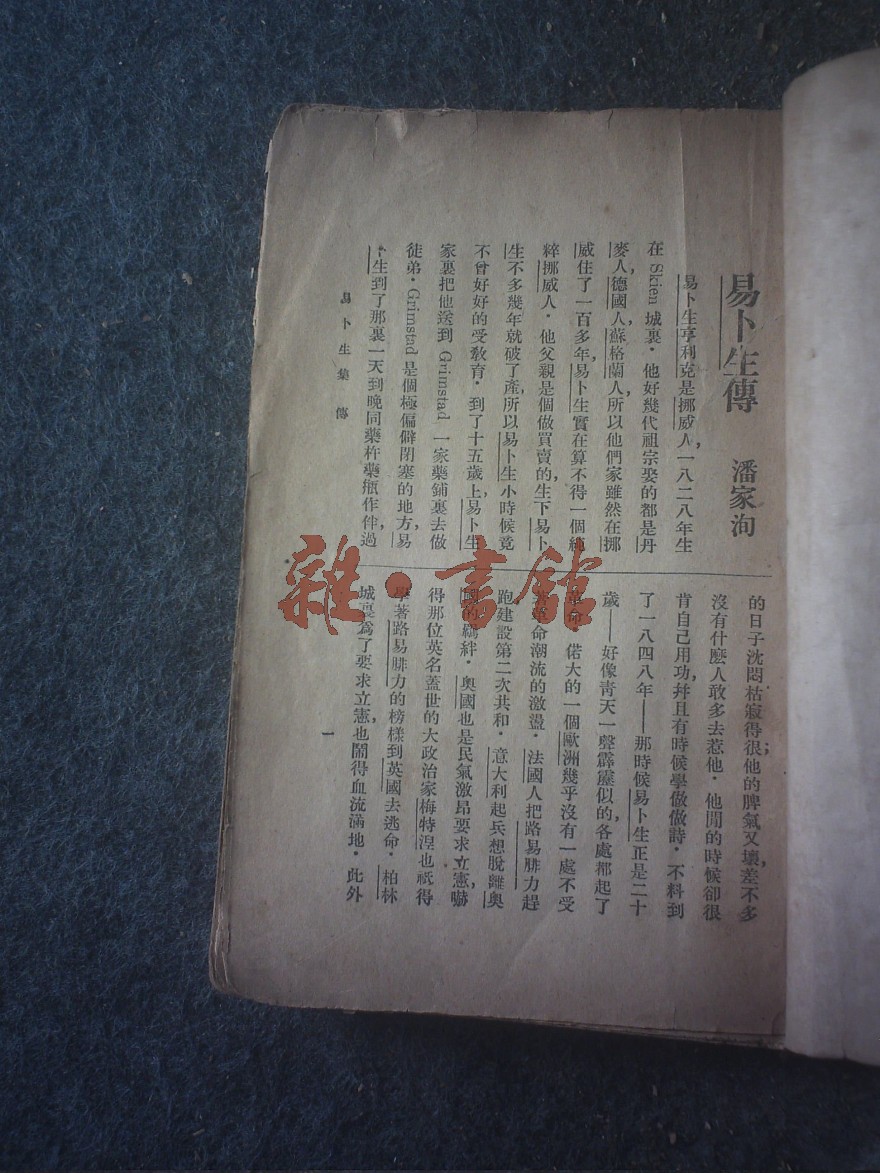 易卜生傳
潘家洵
易卜生亨利克是挪威人，一八二八年生
在 Skien 城裏．他好幾代祖宗娶的都是丹
麥人，德國人，蘇格蘭人，所以他們家雖然在挪
威住了一百多年，易卜生實在算不得一個純
粹挪威人．他父親是個做買賣的，生下易卜
生不多幾年就破了產，所以易卜生小時候竟
不曾好好的受敎育．到了十五歲上，易卜生
家裏把他送到 Grimstad 一家藥鋪裏去做
徒弟．Grimstad 是個極偏僻閉塞的地方，易
卜生到了那裏一天到晚同藥杵藥瓶作伴，過
的日子沈悶枯寂得很；他的脾氣又壞，差不多
沒有什麼人敢多去惹他．他閒的時候卻很
肯自己用功，幷且有時候學做做詩．不料到
了一八四八年——那時候易卜生正是二十
歲——好像靑天一聲霹靂似的，各處都起了
革命，偌大的一個歐洲幾乎沒有一處不受
革命潮流的激盪．法國人把路易腓力趕
跑建設第二次共和．意大利起兵想脫離奧
國的羈絆．奧國也是民氣激昂要求立憲，嚇
得那位英名蓋世的大政治家梅特涅也祇得
學著路易腓力的榜樣到英國去逃命．柏林
城裏爲了要求立憲，也鬧得血流滿地．此外
易卜生集 傳
一
雜·書館